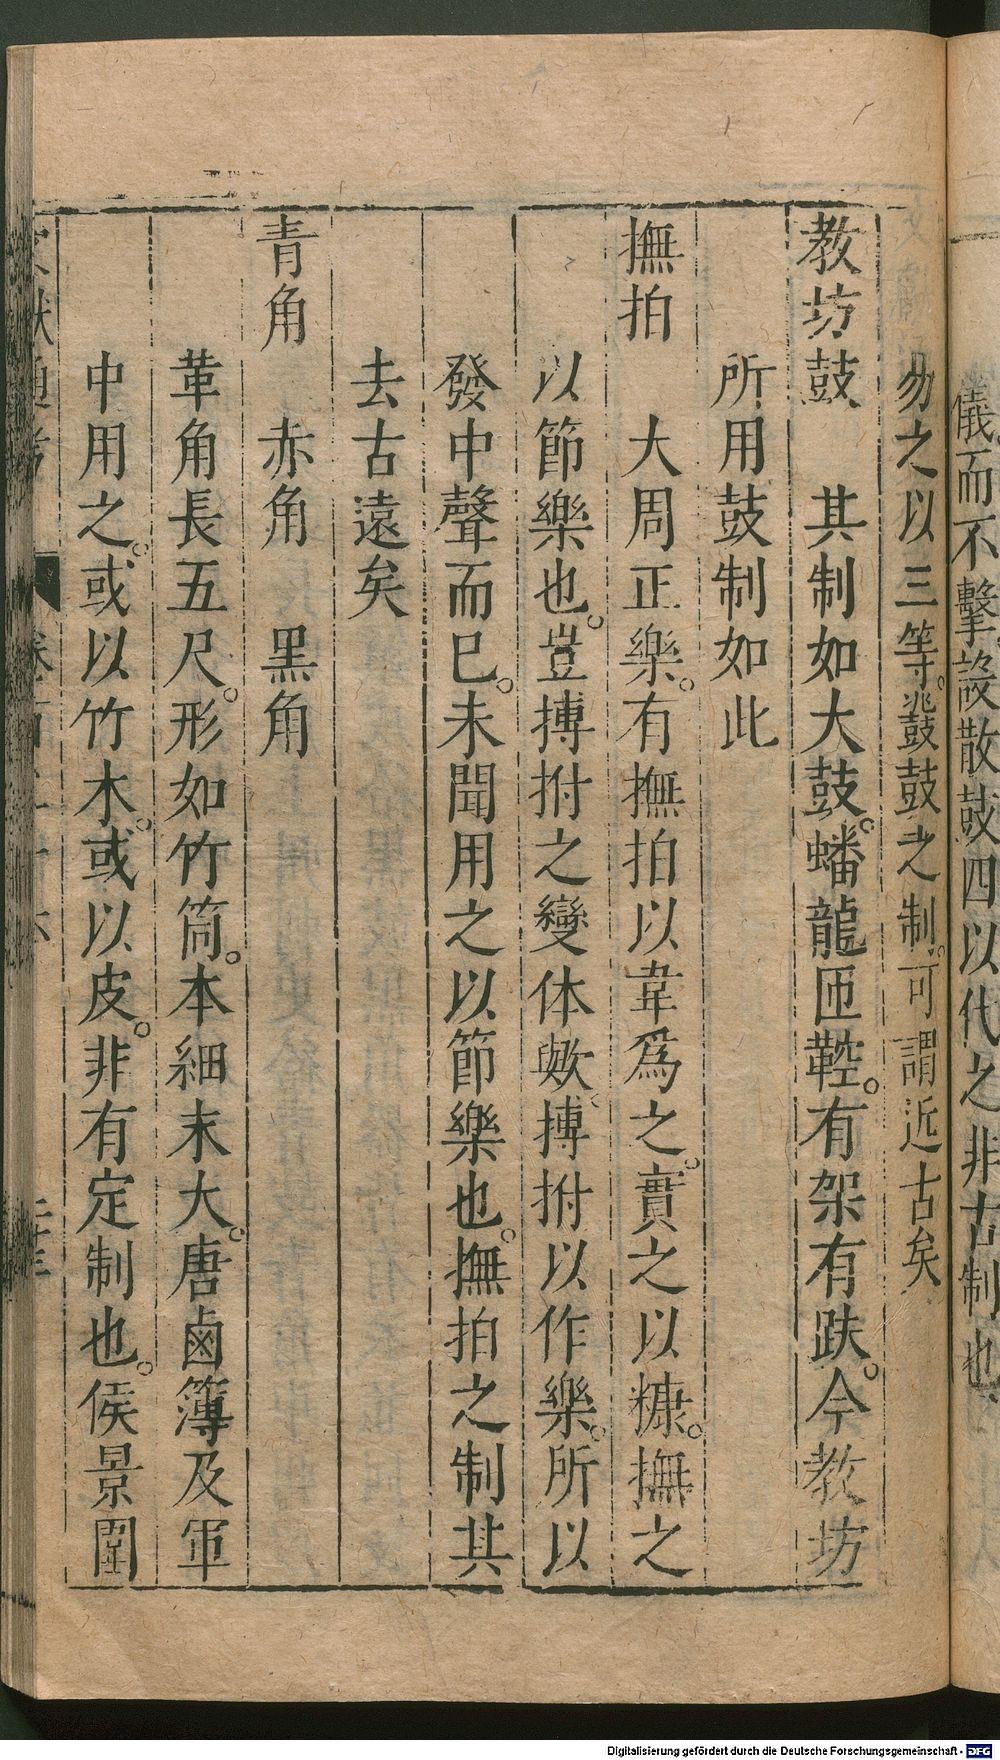 儀而不擊設散鼓四以代之非古制也
易之以三等。鼗鼓之制。可謂近古矣
教坊鼓　其制如大鼓。蟠龍匝鞚。有架有趺。今教坊
所用鼓制如此
撫拍　大周正樂。有撫拍以韋爲之。實之以糠。撫之
以節樂也。豈搏拊之變体歟。搏拊以作樂。所以
發中聲而已。未聞用之以節樂也。撫拍之制其
去古遠矣
青角　赤角　黑角
革角長五尺。形如竹筒。本細末大。唐鹵簿及軍
中用之。或以竹木。或以皮。非有定制也。侯景圍
文獻通考 卷一百三十六
Digitalisierung gefördert durch die Deutsche Forschungsgemeinschaft - DFG